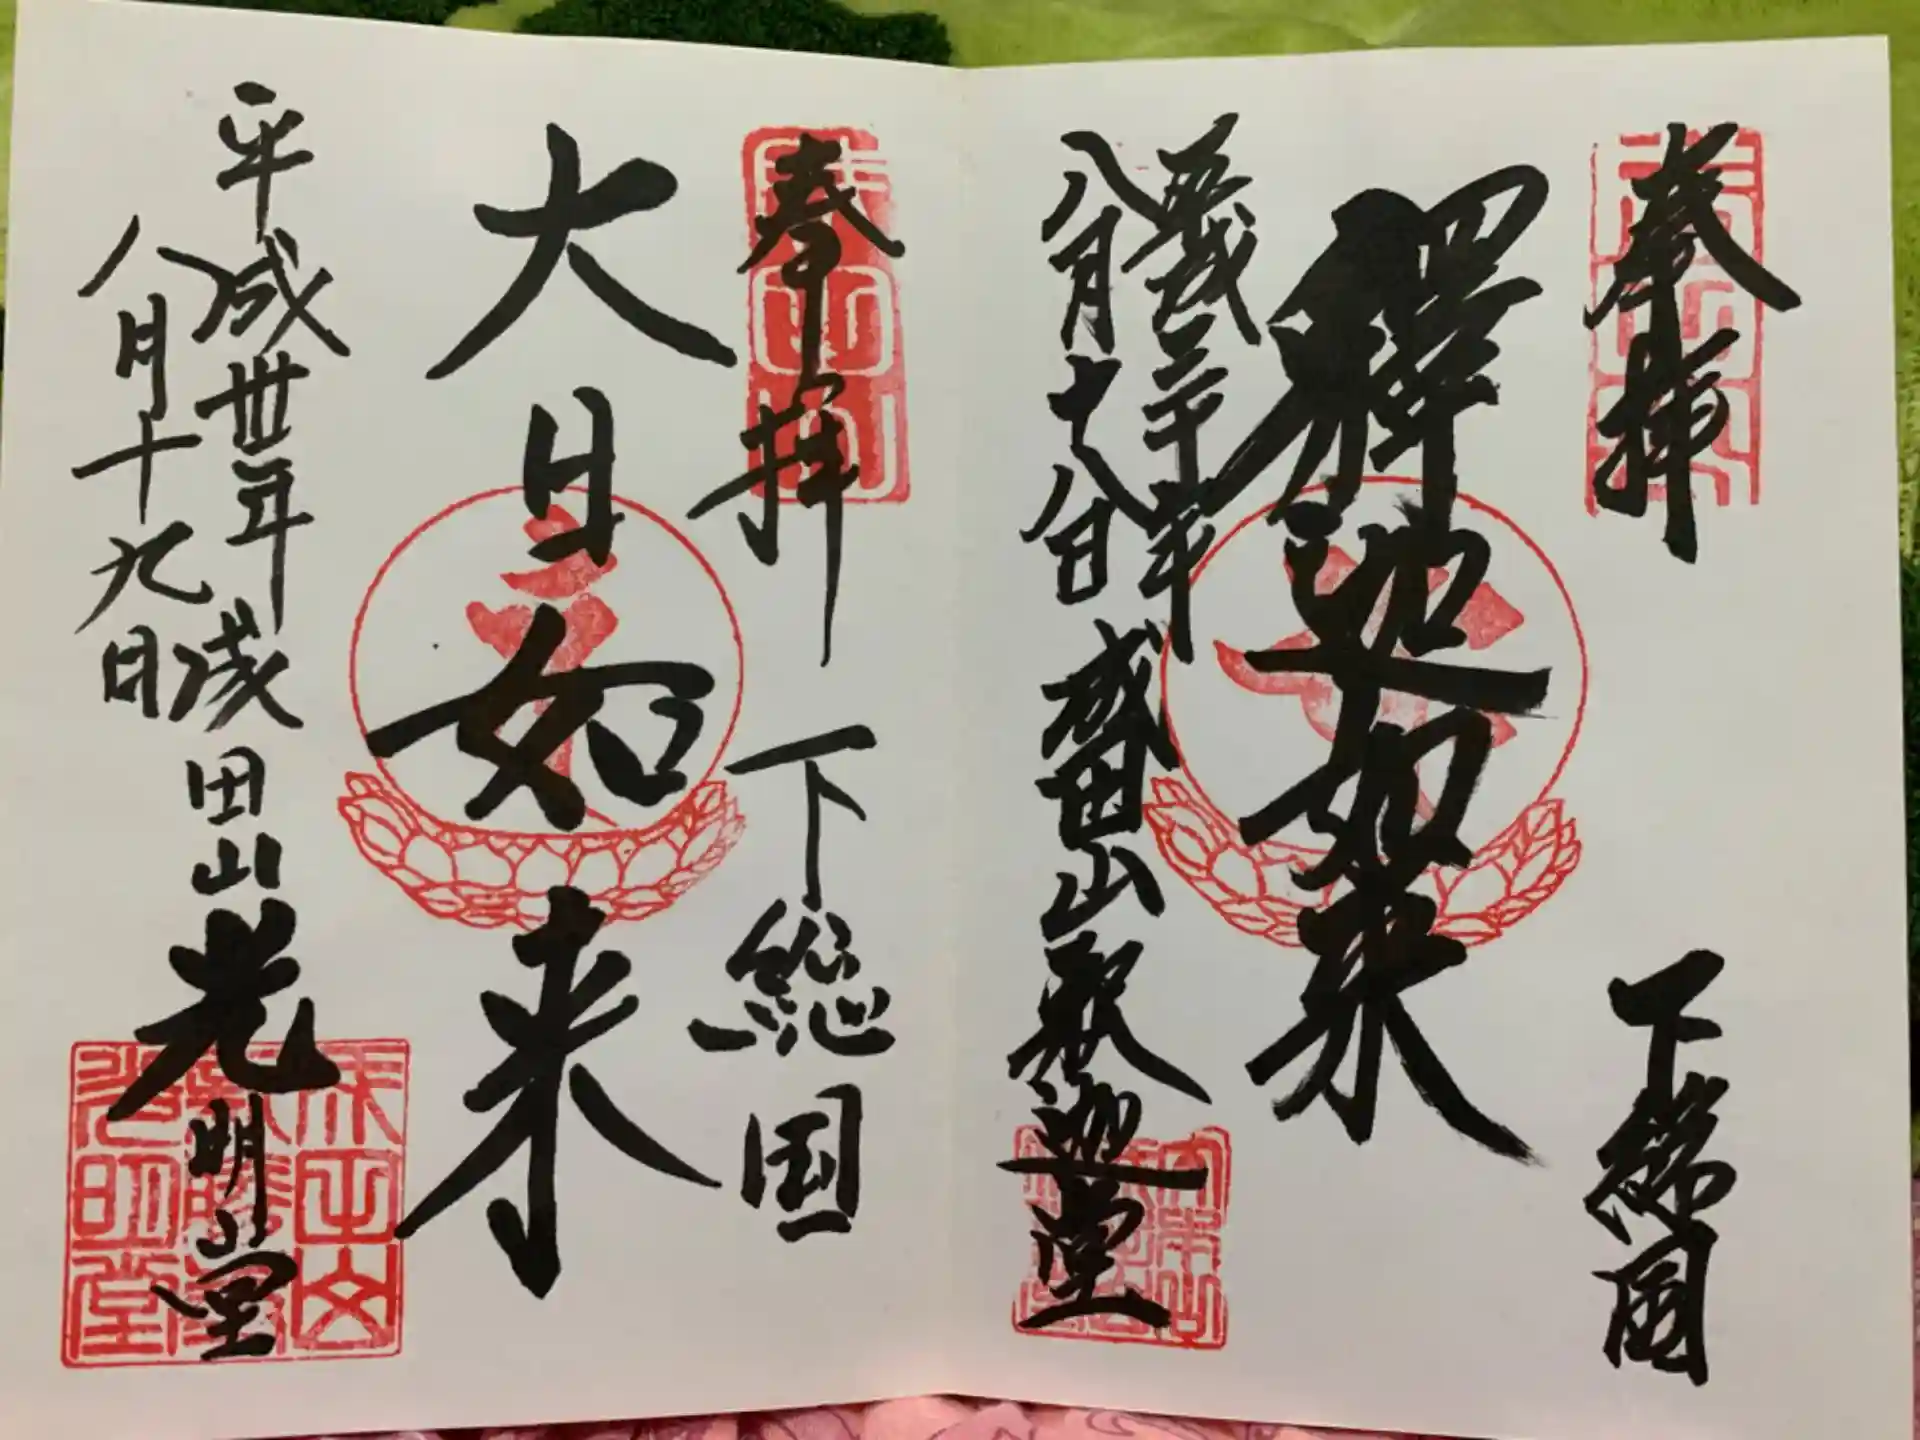 奉拝
下総国
釋迦如来
平成三十年
八月十八日
成田山釈迦堂
奉拝
下総国
大日如来
平成卅年
八月十九日
成田山光明堂